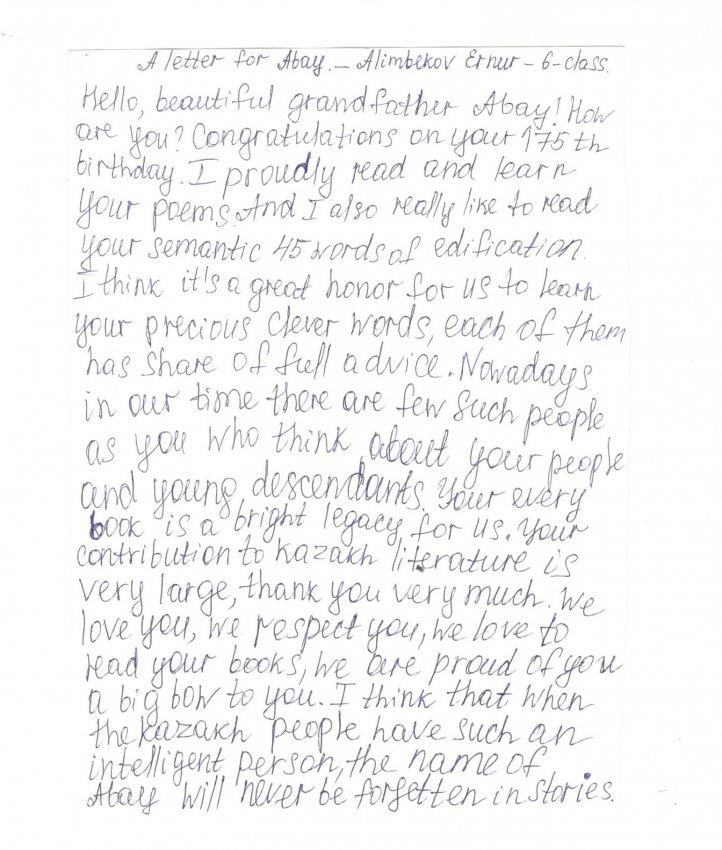 A letter for Abay. – Alimbekov Ernur – 6-class.
Hello, beautiful grandfather Abay! How
are you? Congratulations on your 175 th
birthday. I proudly read and learn
your poems. And I also really like to read
your semantic 45 words of edification.
I think it's a great honor for us to learn
your precious clever words, each of them
has share of full advice. Nowadays
in our time there are few such people
as you who think about your people
and young descendants. Your every
book is a bright legacy for us. Your
contribution to kazakh literature is
very large, thank you very much. We
love you, we respect you, we love to
read your books, we are proud of you
a big bow to you. I think that when
the kazakh people have such an
intelligent person, the name of
Abay will never be forgetten in stories.